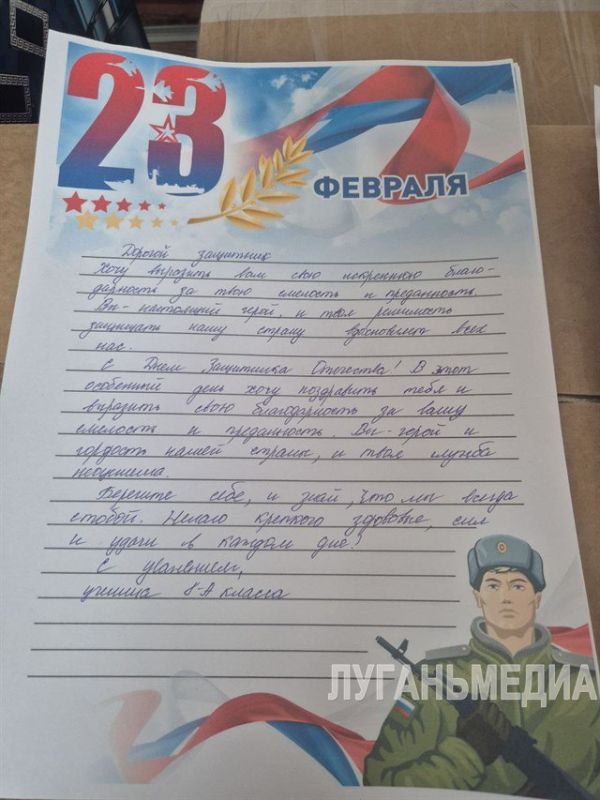 23
ФЕВРАЛЯ
Дорогой защитник
Хочу выразить вам свою искреннюю благо-
дарность за твою смелость и преданность.
Вы - настоящий герой, и твоя решимость
защищать нашу страну вдохновляет всех
нас.
С Днем Защитника Отечества! В этот
особенный день хочу поздравить тебя и
выразить свою благодарность за вашу
смелость и преданность. Вы - герой и
гордость нашей страны, и твоя служба
неоценима.
Берегите себе, и знай, что мы всегда
стобой. Желаю крепкого здововие, сил
и удачи в каждом дне!
С уважением,
ученица 8-А класса
ЛУГАНЬМЕДИА